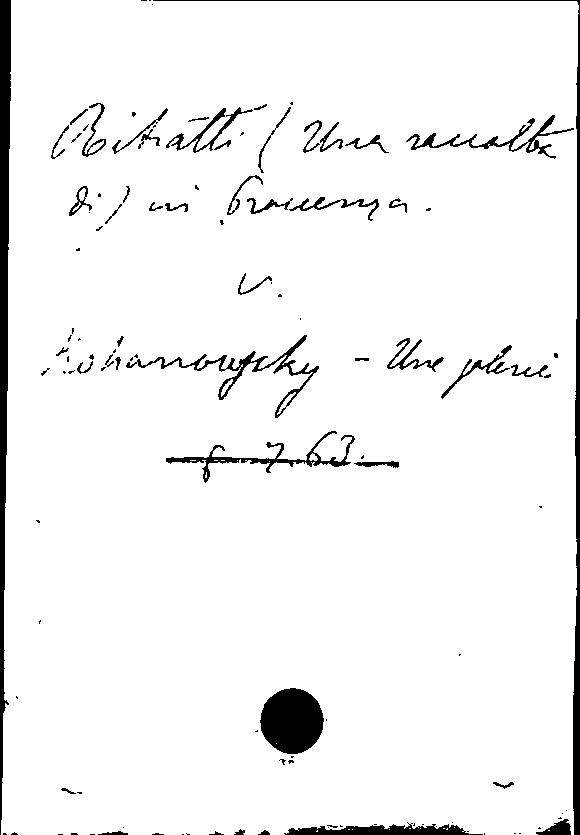 Ritratti (Una raccolta
di) in Provenza.
V.
Kohanowsky - Une galerie
f 7.63.